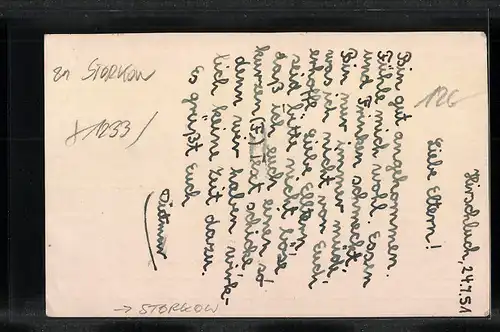 Hirschluch, 24.7.51
Liebe Eltern!
Bin gut angekommen.
Fühle mich wohl. Essen
und Trinken schmeckt.
Bin nur immer müde,
was ich nicht von Euch
erhoffe. Liebe Elltern,
seid bitte nicht böse
daß ich euch einen so
kurzen (F.) Text schicke,
denn wir haben wirk-
lich keine Zeit dazu.
Es grüßt Euch
Dietmar
zu STORKOW
1233/
126
→ STORKOW